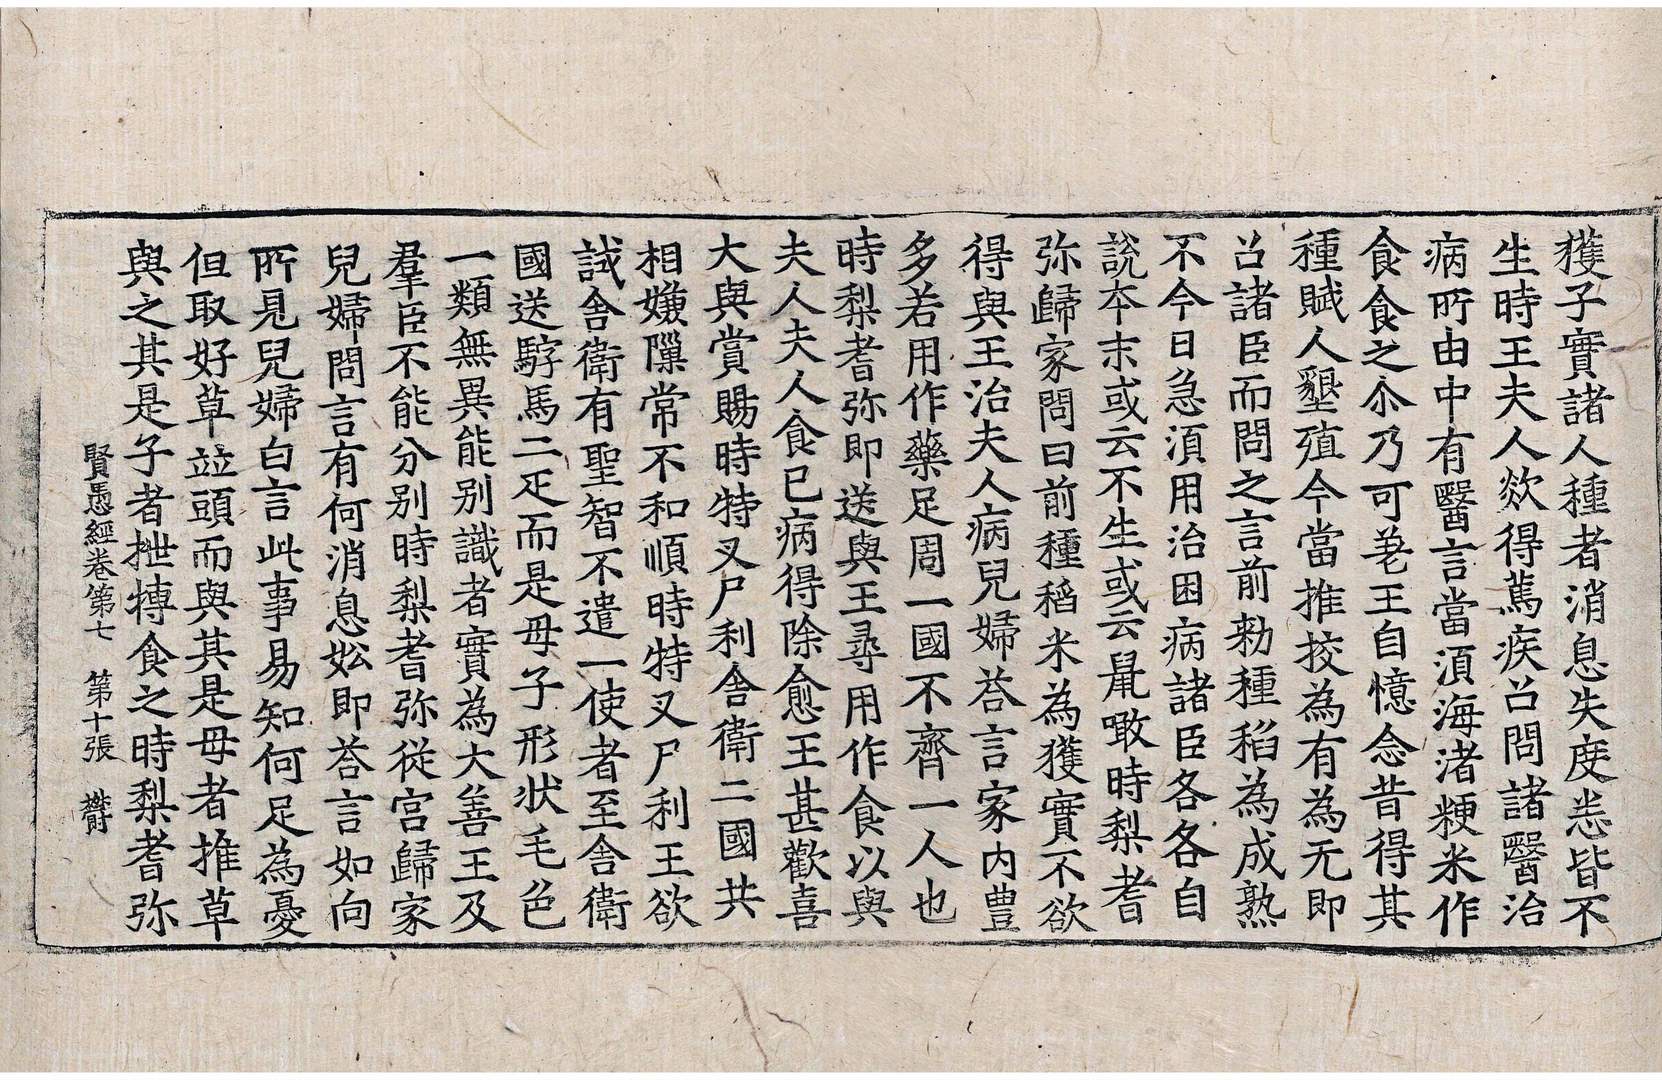 獲子實諸人種者消息失度悉皆不
生時王夫人欻得篤疾召問諸醫治
病所由中有醫言當須海渚粳米作
食食之尒乃可差王自憶念昔得其
種賦人墾殖今當推挍為有為无即
召諸臣而問之言前勑種稻為成熟
不今日急須用治困病諸臣各各自
說本末或云不生或云鼠噉時梨耆
弥歸家問曰前種稻米為獲實不欲
得與王治夫人病兒婦荅言家內豊
多若用作藥足周一國不齊一人也
時梨耆弥即送與王尋用作食以與
夫人夫人食已病得除愈王甚歡喜
大與賞賜時特叉尸利舍衛二國共
相嫌隟常不和順時特叉尸利王欲
試舍衛有聖智不遣一使者至舍衛
國送騲馬二疋而是母子形状毛色
一類無異能別識者實為大善王及
羣臣不能分別時梨耆弥從宮歸家
兒婦問言有何消息妐即荅言如向
所見兒婦白言此事易知何足為憂
但取好草並頭而與其是母者推草
與之其是子者抴摶食之時梨耆弥
賢愚經卷第七 第十張 欝